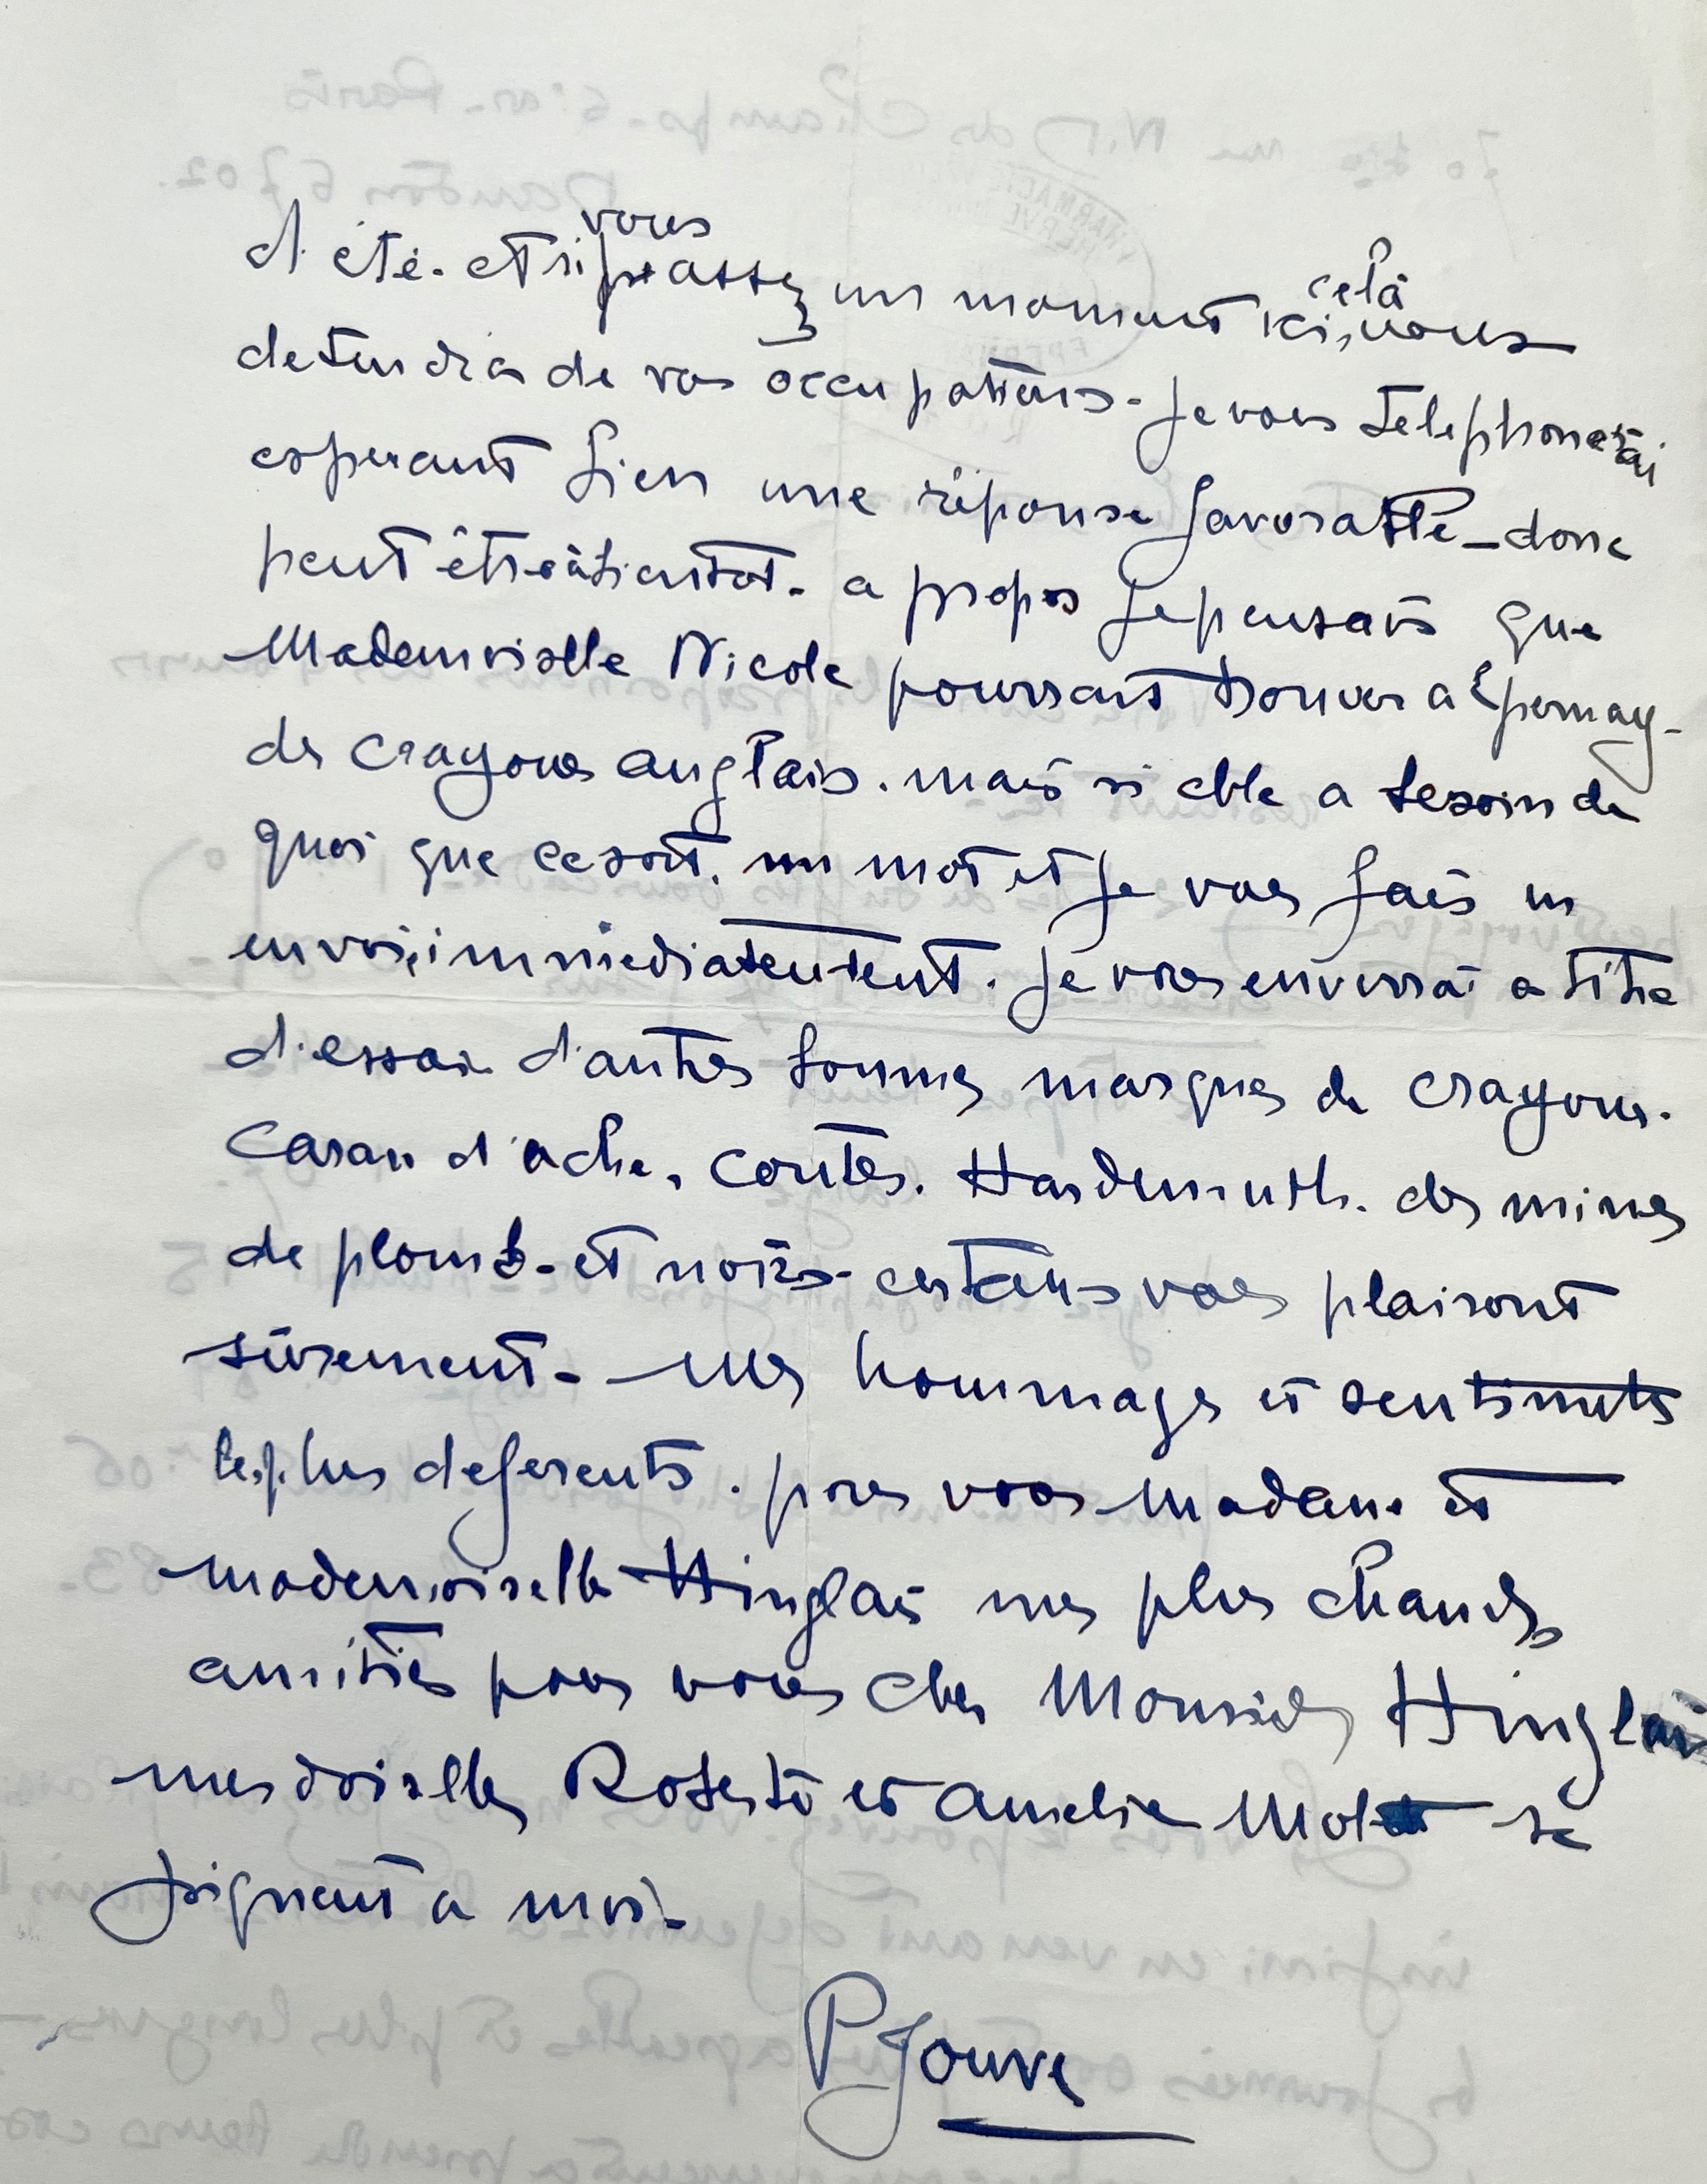 d'été. et si vous passez un moment ici, cela vous
detendra de vos occupations. je vous telephonerai
esperant bien une réponse favorable _ donc
peut être à bientot. a propos je pensais que
Mademoiselle Nicole pourrait trouver a Epernay.
des crayons anglais. mais si elle a besoin de
quoi que ce soit. un mot et je vous fais un
envoi, immediatement. je vous enverrai a titre
d'essai d'autres bonnes marques de crayons.
Caran d'ache, contés. Hardtmuth. des mines
de plomb. et noirs. certains vous plairont
sûrement. mes hommages et sentiments
les plus deferents. pour vous Madame et
mademoiselle Hinglais mes plus chaudes
amitiés pour vous cher Monsieur Hinglais
mesdoiselles Roberte et Amelie Molet se
joignent a moi.
PJouve